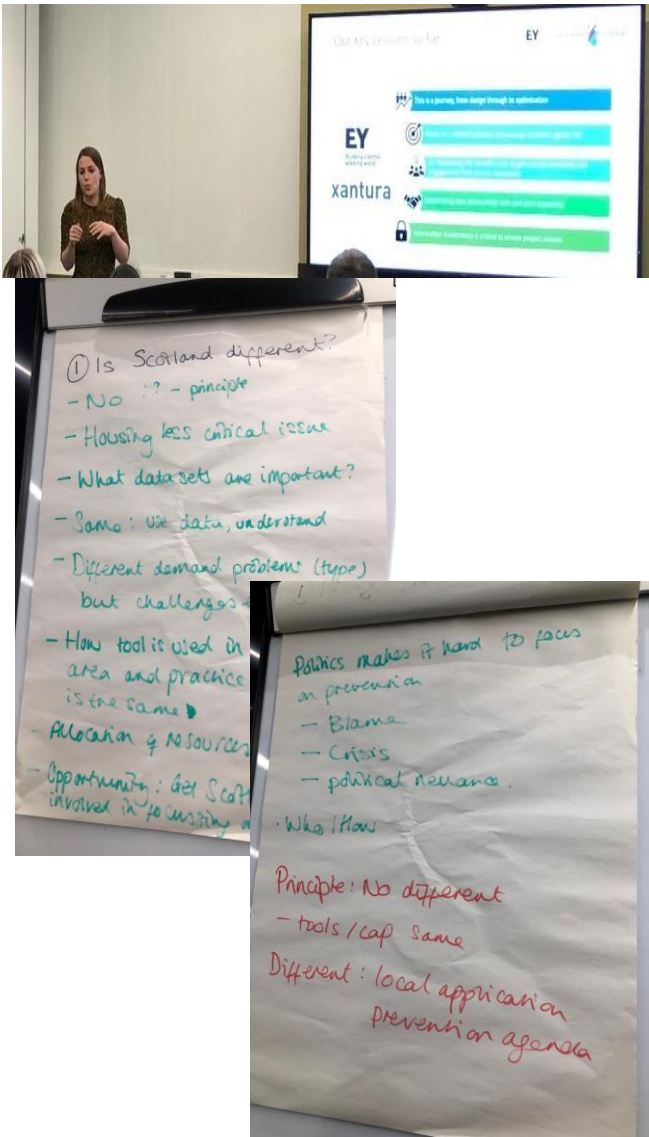 Our Key Lessons so far
EY
This is a journey, from design through to optimisation
EY
Building a better
working world
xantura
Information Governance is critical to ensure project success
① Is Scotland different?
- No ?? - principle
- Housing less critical issue
- What data sets are important?
- Same: use data, understand
- Different demand problems (type)
but challenges
- How tool is used in
area and practice
is the same
- Allocation & resources
- Opportunity: Get Scot
involved in focussing
Politics makes it hard to focus
on prevention
- Blame
- Crisis
- political
. Who/How
Principle: No different
- tools/cap same
Different: local application
prevention agenda